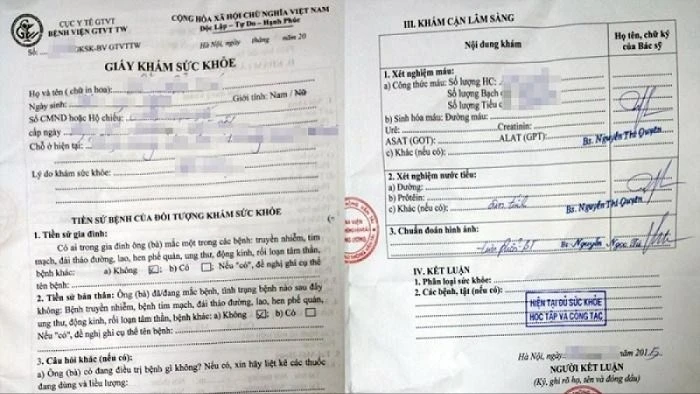 CỤC Y TẾ GTVT
BỆNH VIỆN GTVT TW
Số: GKSK-BV GTVTTW
CỘNG HÒA XÃ HỘI CHỦ NGHĨA VIỆT NAM
Độc Lập - Tự Do - Hạnh Phúc
Hà Nội, ngày tháng năm 20
GIẤY KHÁM SỨC KHỎE
Họ và tên ( chữ in hoa):
Ngày sinh: Giới tính: Nam / Nữ
Số CMND hoặc Hộ chiếu:
cấp ngày
Chỗ ở hiện tại:
Lý do khám sức khỏe:
TIỀN SỬ BỆNH CỦA ĐỐI TƯỢNG KHÁM SỨC KHỎE
1. Tiền sử gia đình:
Có ai trong gia đình ông (bà) mắc một trong các bệnh: truyền nhiễm, tim
mạch, đái tháo đường, lao, hen phế quản, ung thư, động kinh, rối loạn tâm thần,
bệnh khác: a) Không b) Có Nếu "có", đề nghị ghi cụ thể
tên bệnh:
2. Tiền sử bản thân: Ông (bà) đã/đang mắc bệnh, tình trạng bệnh nào sau đây
không: Bệnh truyền nhiễm, bệnh tim mạch, đái tháo đường, lao, hen phế quản,
ung thư, động kinh, rối loạn tâm thần, bệnh khác: a) Không b) Có
Nếu "có", đề nghị ghi cụ thể tên bệnh:
3. Câu hỏi khác (nếu có):
a) Ông (bà) có đang điều trị bệnh gì không? Nếu có, xin hãy liệt kê các thuốc
đang dùng và liều lượng:
III. KHÁM CẬN LÂM SÀNG
Nội dung khám
Họ tên, chữ ký
của Bác sỹ
1. Xét nghiệm máu:
a) Công thức máu: Số lượng HC:
Số lượng Bạch
Số lượng Tiểu
b) Sinh hóa máu: Đường máu:
Urê: Creatinin:
ASAT (GOT): ALAT (GPT):
c) Khác (nếu có):
Bs. Nguyễn Thị Quyên
2. Xét nghiệm nước tiểu:
a) Đường:
b) Prôtêin:
c) Khác (nếu có): âm tính
Bs. Nguyễn Thị Quyên
3. Chuẩn đoán hình ảnh:
Bs. Nguyễn Ngọc
IV. KẾT LUẬN
1. Phân loại sức khỏe:
2. Các bệnh, tật (nếu có):
HIỆN TẠI ĐỦ SỨC KHỎE
HỌC TẬP VÀ CÔNG TÁC
Hà Nội, ngày năm 2015
NGƯỜI KẾT LUẬN
(Ký, ghi rõ họ, tên và đóng dấu)